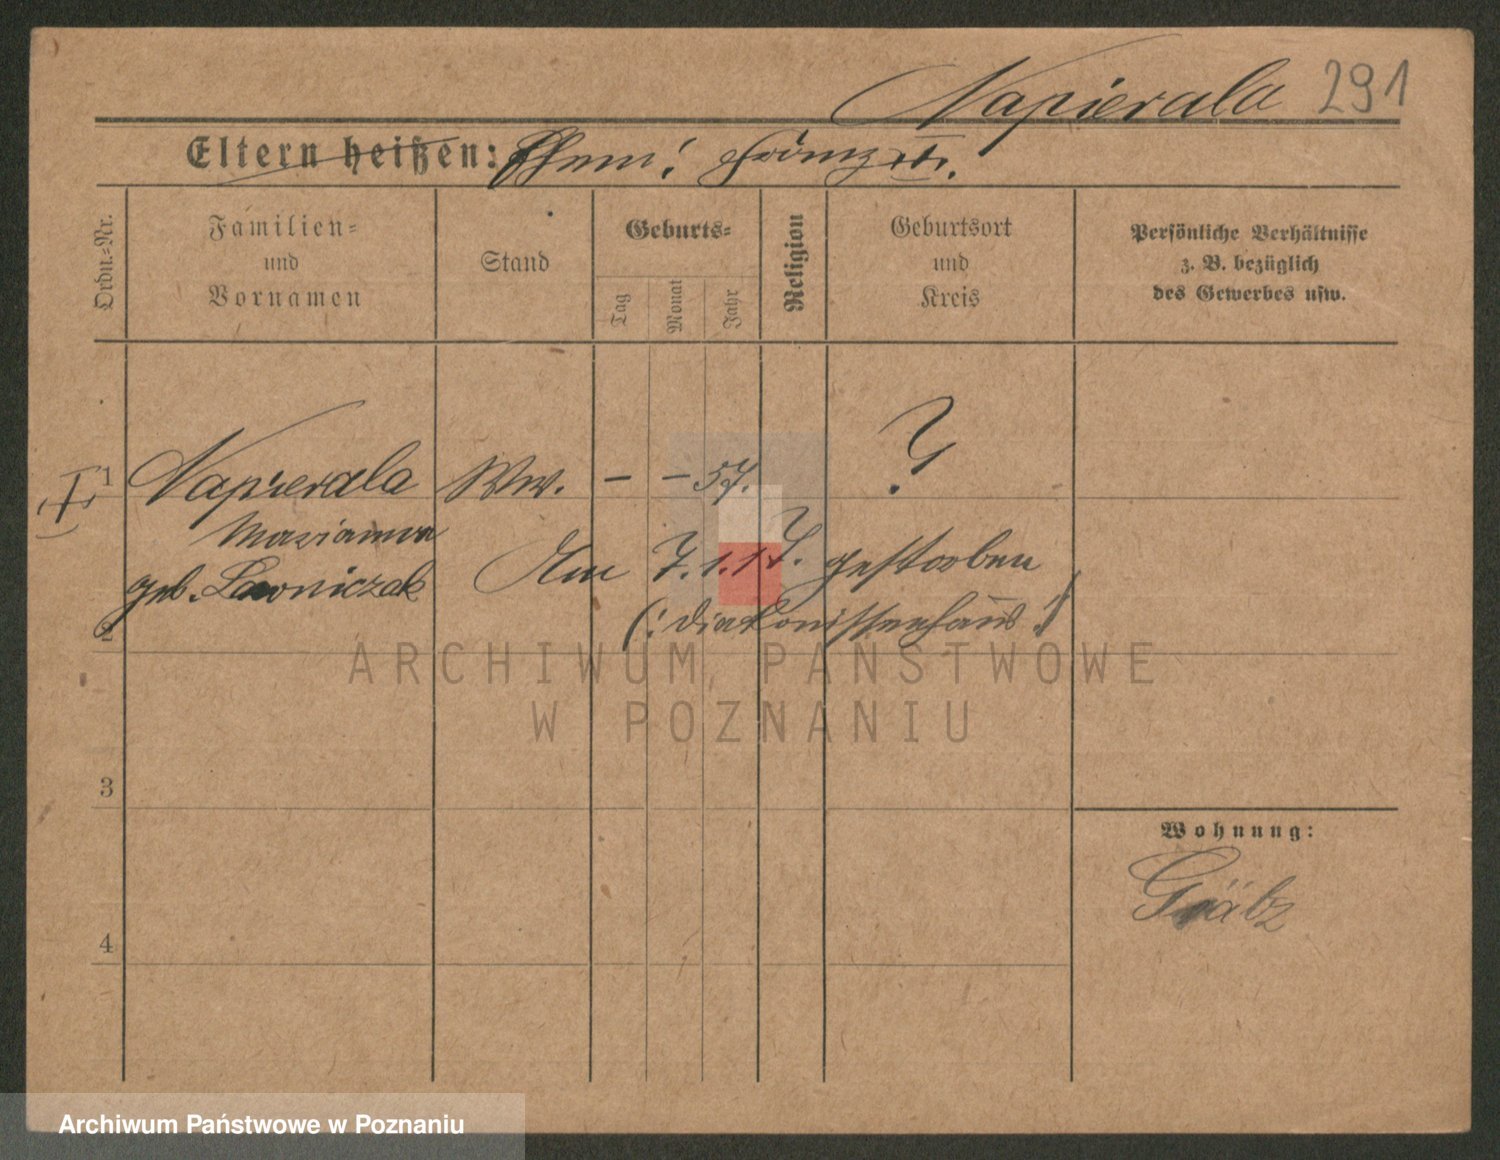 Napierala 291
Eltern heißen: Ehem: Franz III.
Ordn.-Nr.
Familien-
und
Vornamen
Stand
Geburts-
Tag
Monat
Jahr
Religion
Geburtsort
und
Kreis
Persönliche Verhältnisse
z. B. bezüglich
des Gewerbes usw.
1 Napierala Ww. – – 57. ?
Marianna
geb. Lawniczak Am 7.1.17. gestorben
2 (: Diakonissenhaus :)
ARCHIWUM PAŃSTWOWE
W POZNANIU
3
Wohnung:
Gräbz
4
Archiwum Państwowe w Poznaniu